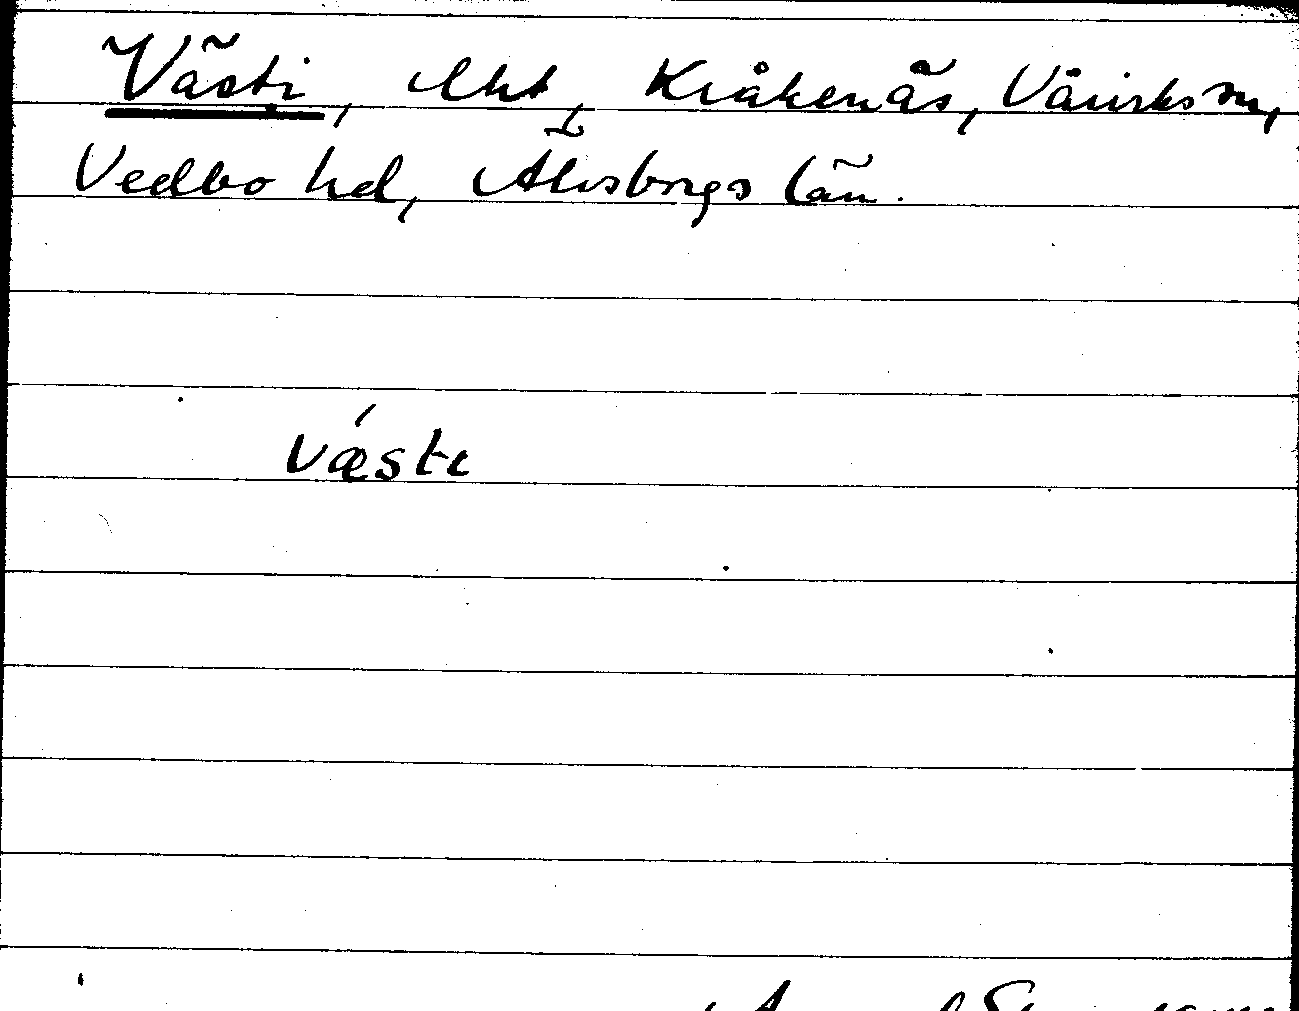 Västi, lht, Kråkenäs, Vårviks sn,
Vedbo hd, Älvsborgs län.
væ´ste